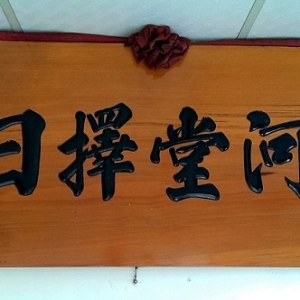 河堂擇日